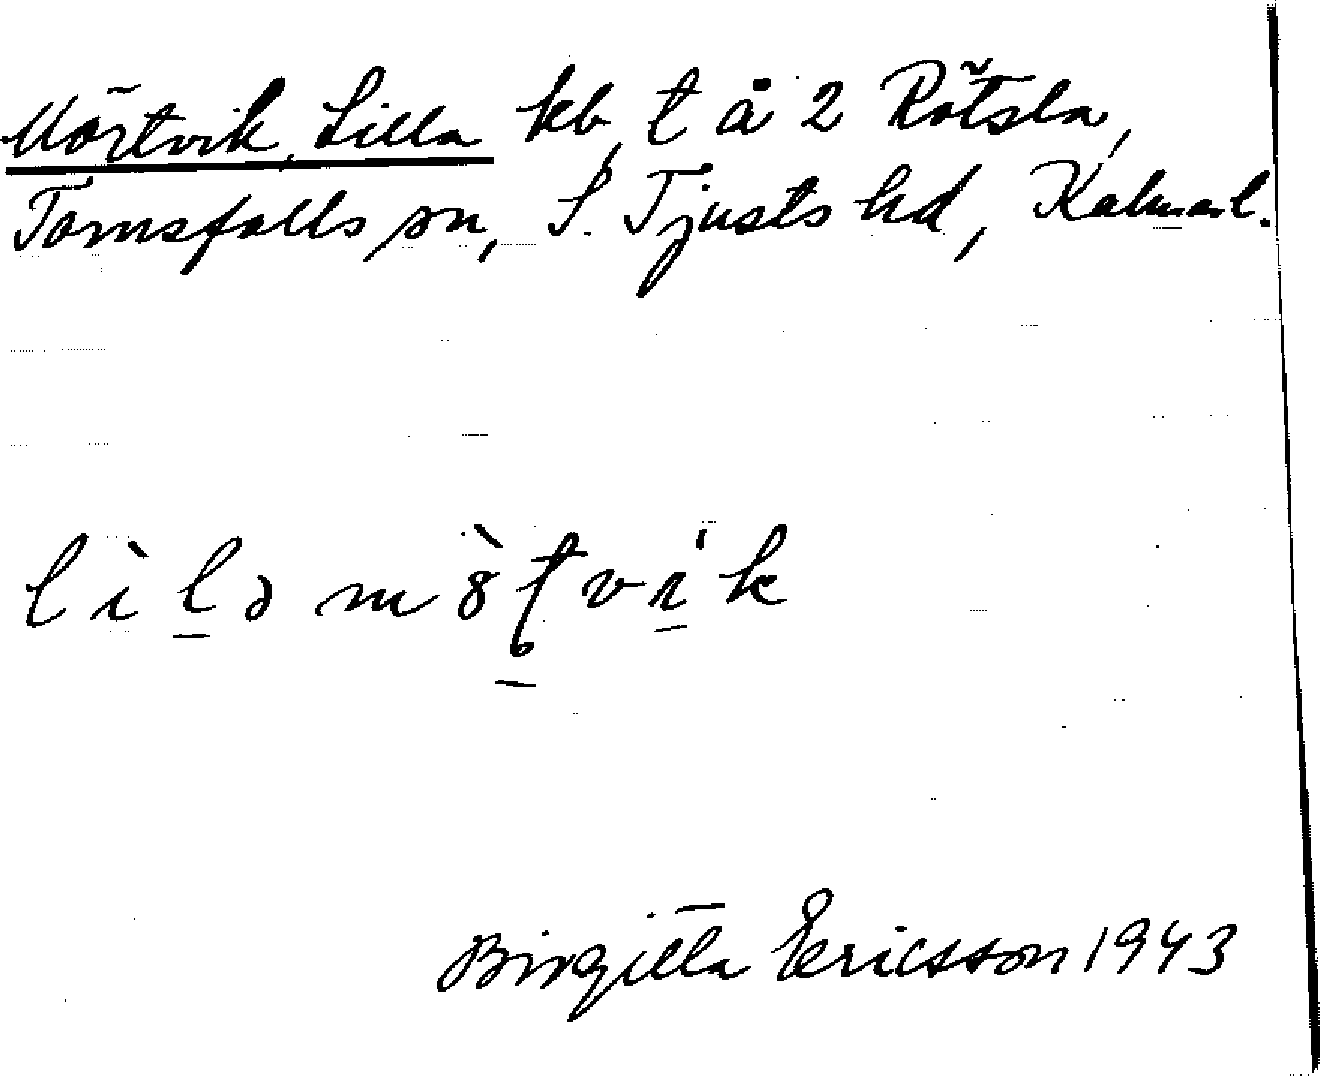 Mörtvik, Lilla kb, t å 2 Rötsla,
Törnsfalls sn, S. Tjusts hd, Kalmar l.
lìlə m8̀ʈvík
Birgitta Ericsson 1943